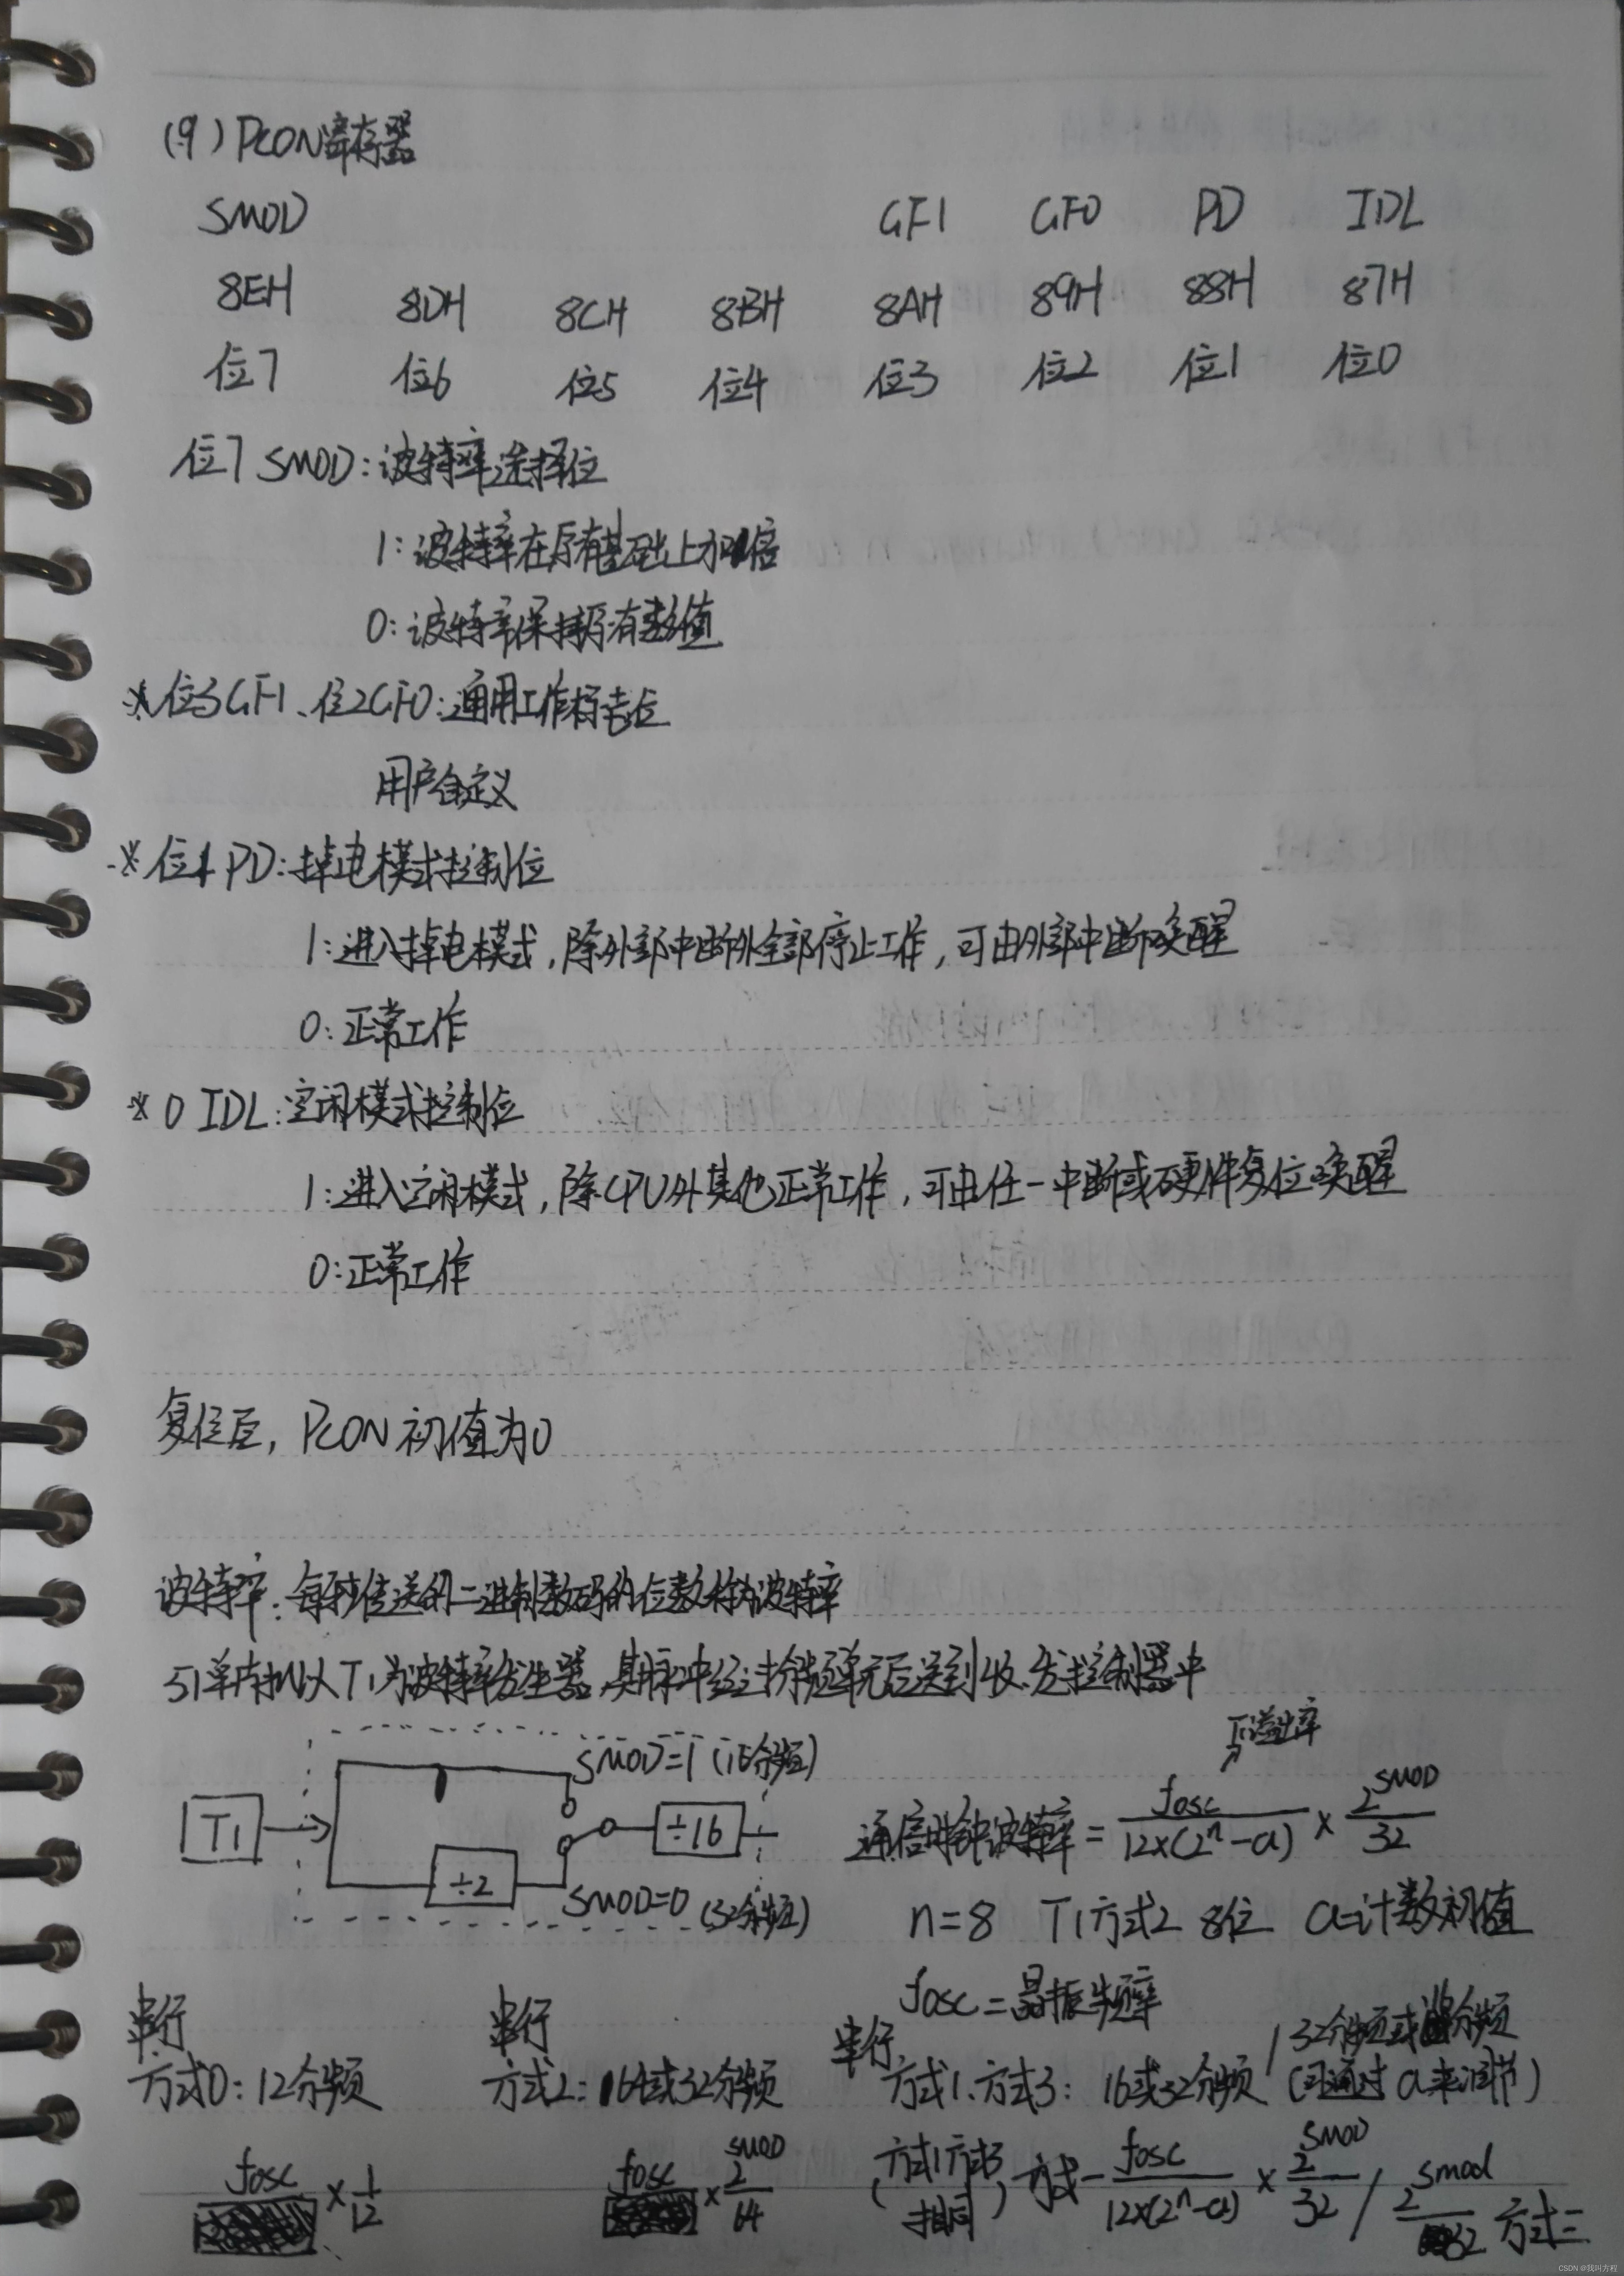 (9) PCON寄存器
SMOD GF1 GF0 PD IDL
8EH 8DH 8CH 8BH 8AH 89H 88H 87H
位7 位6 位5 位4 位3 位2 位1 位0
位7 SMOD:波特率选择位
1:波特率在原有基础上加倍
0:波特率保持原有数值
※位3GF1、位2GF0:通用工作标志位
用户自定义
※位1 PD:掉电模式控制位
1:进入掉电模式,除外部中断外全部停止工作,可由外部中断唤醒
0:正常工作
※0 IDL:空闲模式控制位
1:进入空闲模式,除CPU外其他正常工作,可由任一中断或硬件复位唤醒
0:正常工作
复位后,PCON初值为0
波特率:每秒传送的二进制数码的位数称为波特率
51单片机以T1为波特率发生器,其脉冲经过分频单元后送到收、发控制器中
T1 ÷2 ÷16
SMOD=1 (16分频)
SMOD=0 (32分频)
T1溢出率
通信时钟波特率 = fosc / 12×(2^n-a) × 2^SMOD / 32
n=8 T1方式2 8位 a=计数初值
fosc=晶振频率
串行
方式0:12分频
fosc × 1/12
串行
方式2:64或32分频
fosc × 2^SMOD / 64
串行
方式1、方式3: 16或32分频 / 32分频或分频
(可通过a来调节)
(方式1方式3相同) 方式一 fosc / 12×(2^n-a) × 2^SMOD / 32 / 2^smod / 32 方式三
CSDN @我叫方程